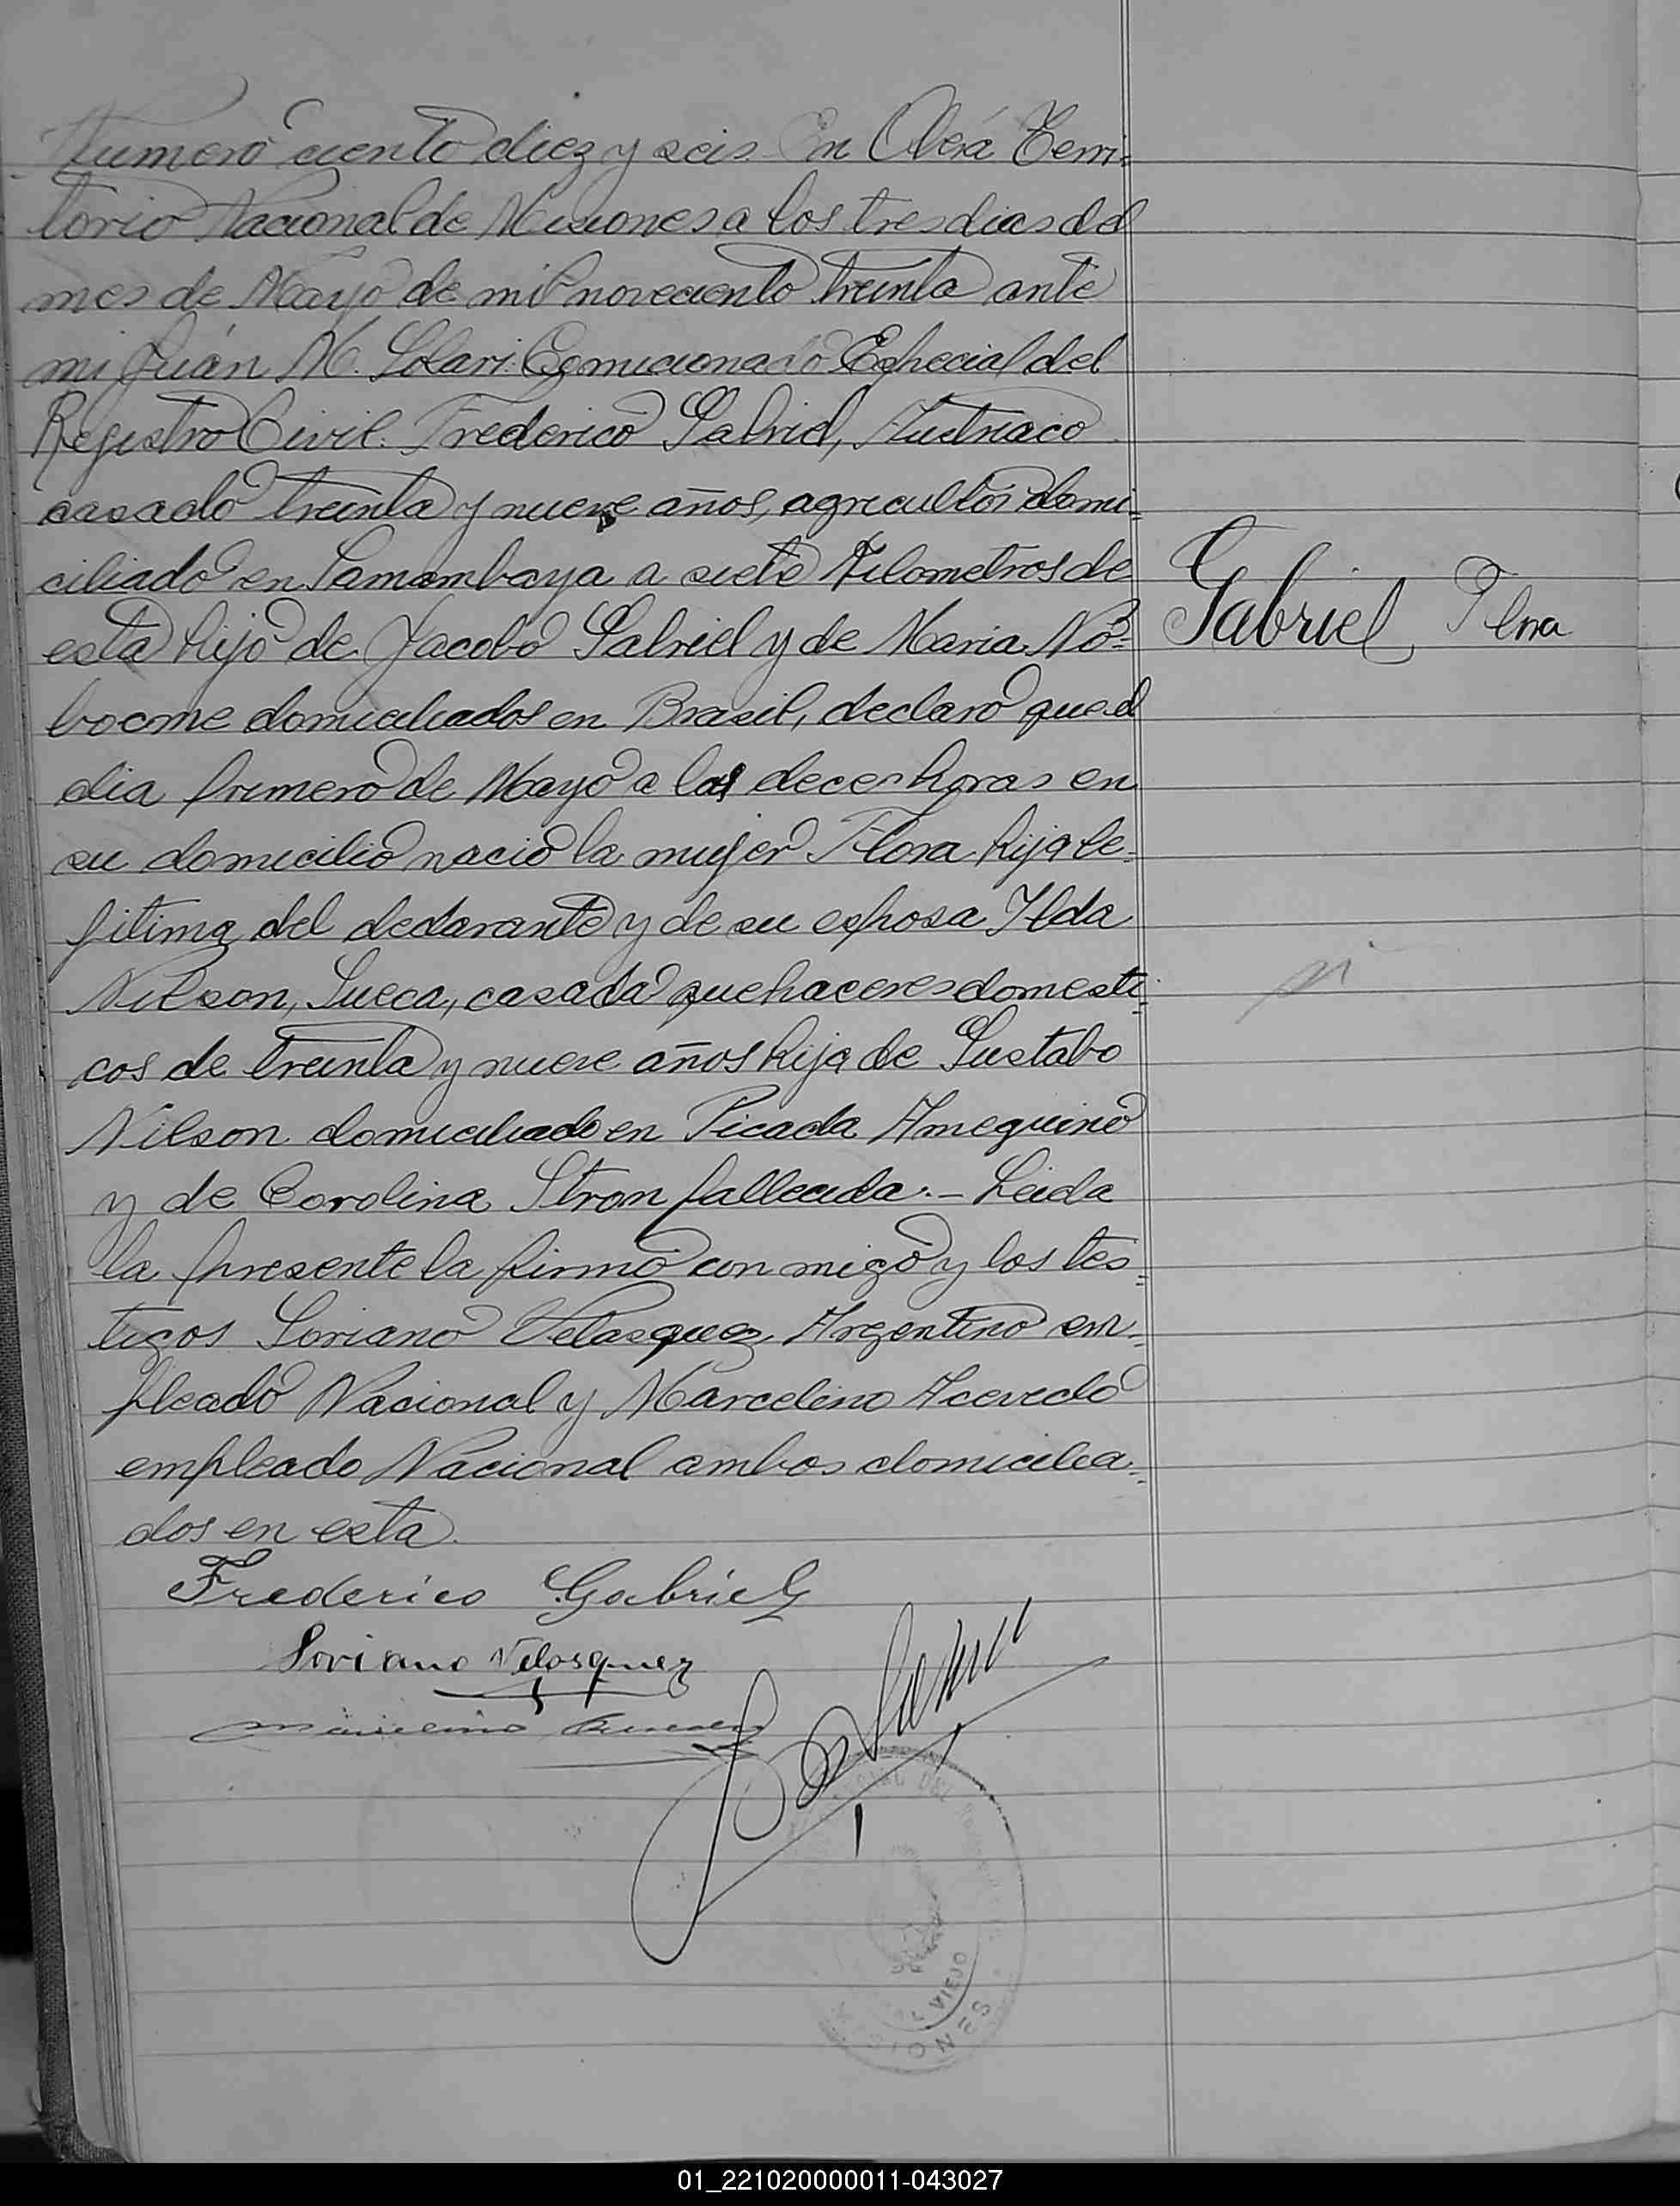 Numero ciento diez y seis En Oberá Terri=
torio Nacional de Misiones a los tres dias del
mes de Mayo de mil noveciento treinta ante
mi Juán M. Solari Comicionado Especial del
Registro Civil. Frederico Gabriel, Austriaco
casado treinta y nueve años, agricultor domi=
ciliado en Samambaya a siete Kilometros de
esta hijo de Jacobo Gabriel y de Maria No=
bocme domiciliados en Brasil, declaró que el
dia primero de Mayo a las doce horas en
su domicilio nació la mujer Flora hija le=
gitima del declarante y de su esposa Ilda
Nilson, Sueca, casada quehaceres domesti=
cos de treinta y nueve años hija de Gustabo
Nilson domiciliado en Picada Ameguino
y de Carolina Stron fallecida.- Leida
la presente la firmó con migo y los tes=
tigos Soriano Velasquez Argentino em=
pleado Nacional y Marcelino Acevedo
empleado Nacional ambos domicilia=
dos en esta.
Gabriel Flora
Frederico Gabriel
Soriano Velasquez
Marcelino Acevedo
VIEJO
MISIONES
01_221020000011-043027